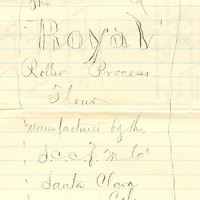 The
"Royal"
Roller Process
Flour
Manufactured by the
S. C. F. M. Co
Santa Clara
Cal.